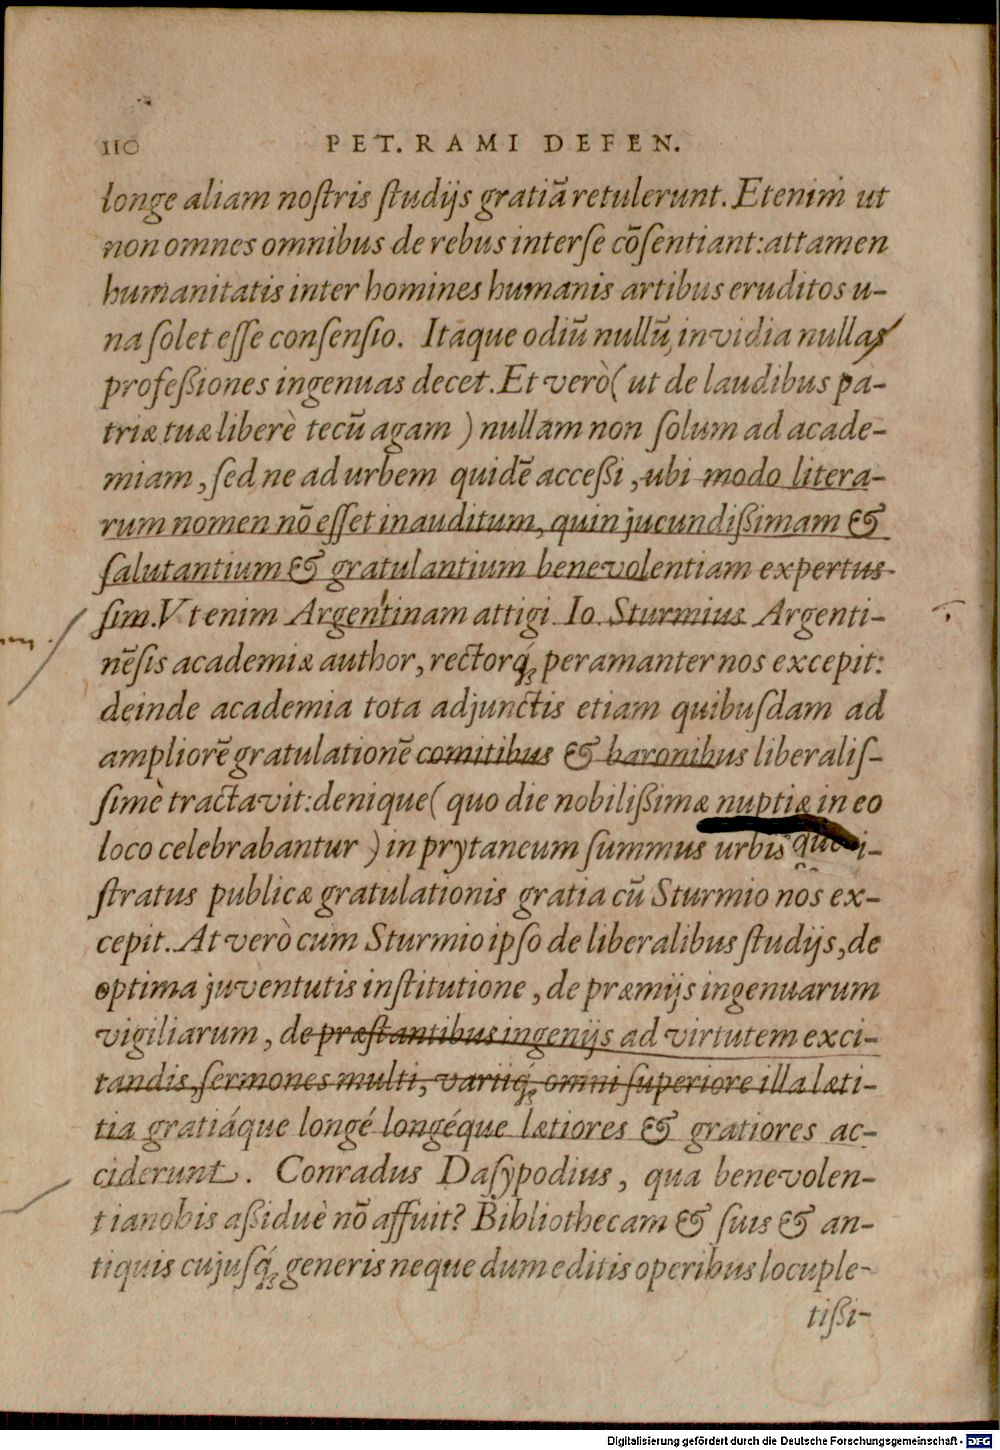 110 PET. RAMI DEFEN.
longe aliam noſtris ſtudijs gratiā retulerunt. Etenim ut
non omnes omnibus de rebus inter ſe cōſentiant: attamen
humanitatis inter homines humanis artibus eruditos u-
na ſolet eſſe conſenſio. Itaque odiū nullū, invidia nulla
profeßiones ingenuas decet. Et verò ( ut de laudibus pa-
triæ tuæ liberè tecū agam ) nullam non ſolum ad acade-
miam, ſed ne ad urbem quidē acceßi, ubi modo litera-
rum nomen nō eſſet inauditum, quin jucundißimam &
ſalutantium & gratulantium benevolentiam expertus
ſim. Vt enim Argentinam attigi Io. Sturmius Argenti-
nēſis academiæ author, rectorq́; peramanter nos excepit:
deinde academia tota adjunctis etiam quibuſdam ad
ampliorē gratulationē comitibus & baronibus liberaliſ-
ſimè tractavit: denique ( quo die nobilißimæ nuptiæ in eo
loco celebrabantur ) in prytaneum ſummus urbis i-
ſtratus publicæ gratulationis gratia cū Sturmio nos ex-
cepit. At verò cum Sturmio ipſo de liberalibus ſtudijs, de
optima juventutis inſtitutione, de præmijs ingenuarum
vigiliarum, de præſtantibus ingenijs ad virtutem exci-
tandis, ſermones multi, variiq́; omni ſuperiore illa læti-
tia gratiáque longé longéque lætiores & gratiores ac-
ciderunt. Conradus Daſypodius, qua benevolen-
tia nobis aßiduè nō affuit? Bibliothecam & ſuis & an-
tiquis cujuſq́; generis neque dum editis operibus locuple-
tißi-
Digitalisierung gefördert durch die Deutsche Forschungsgemeinschaft - DFG